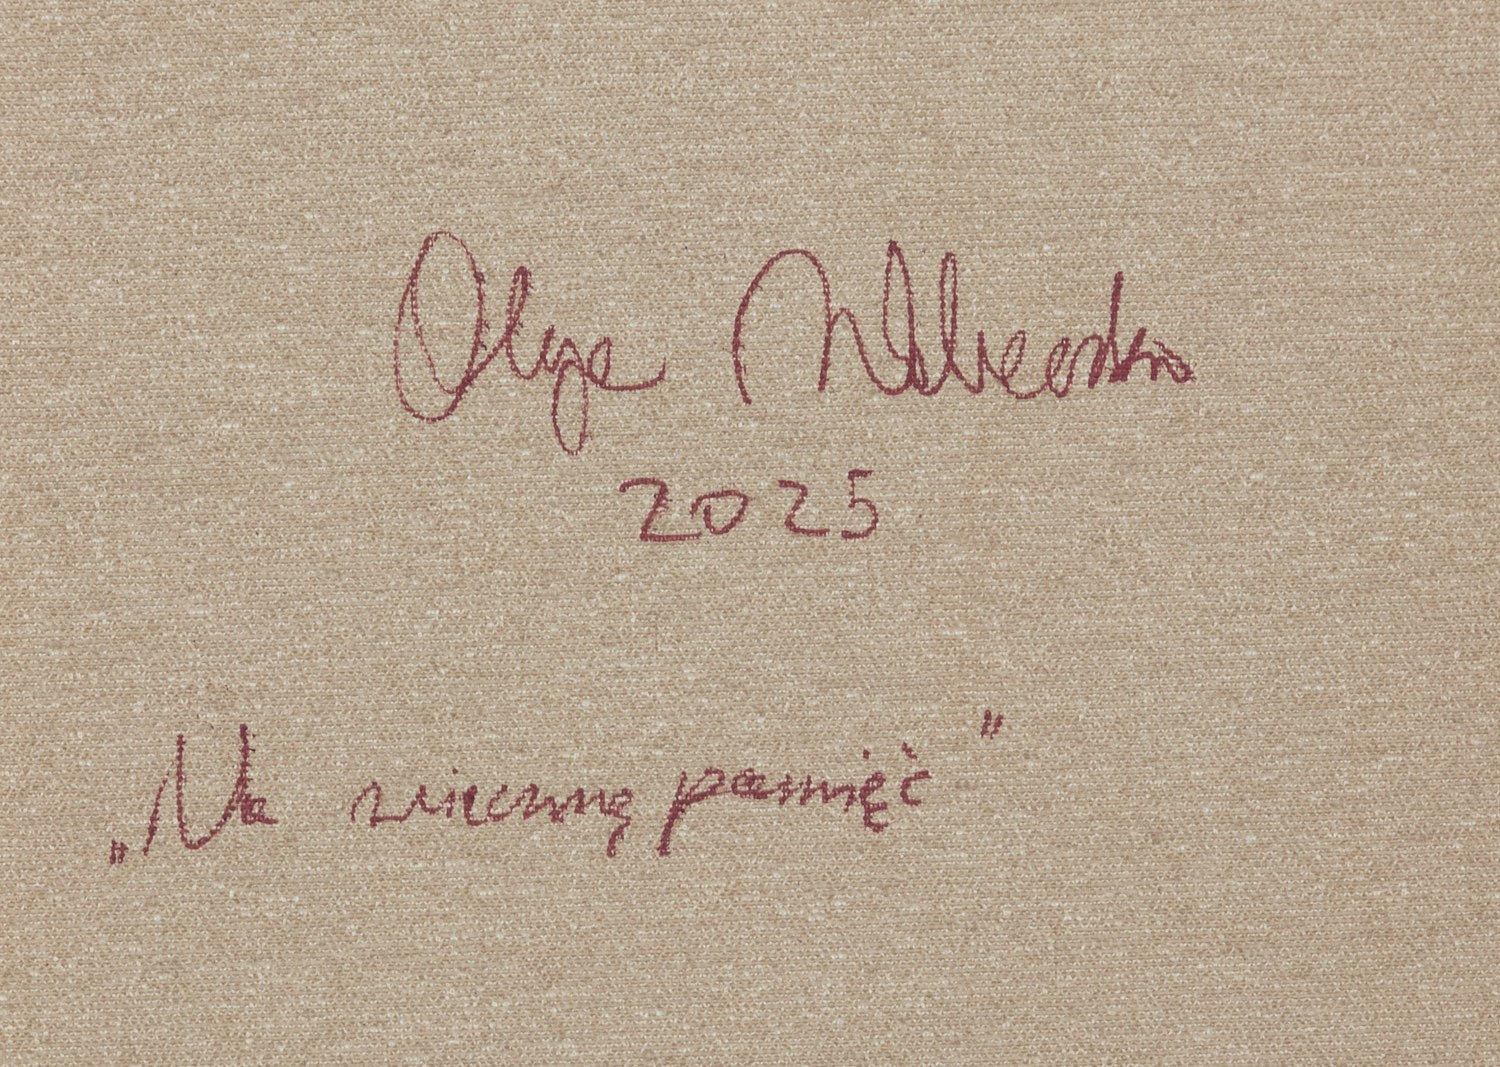 Olga
2025
„Na wieczną pamięć”